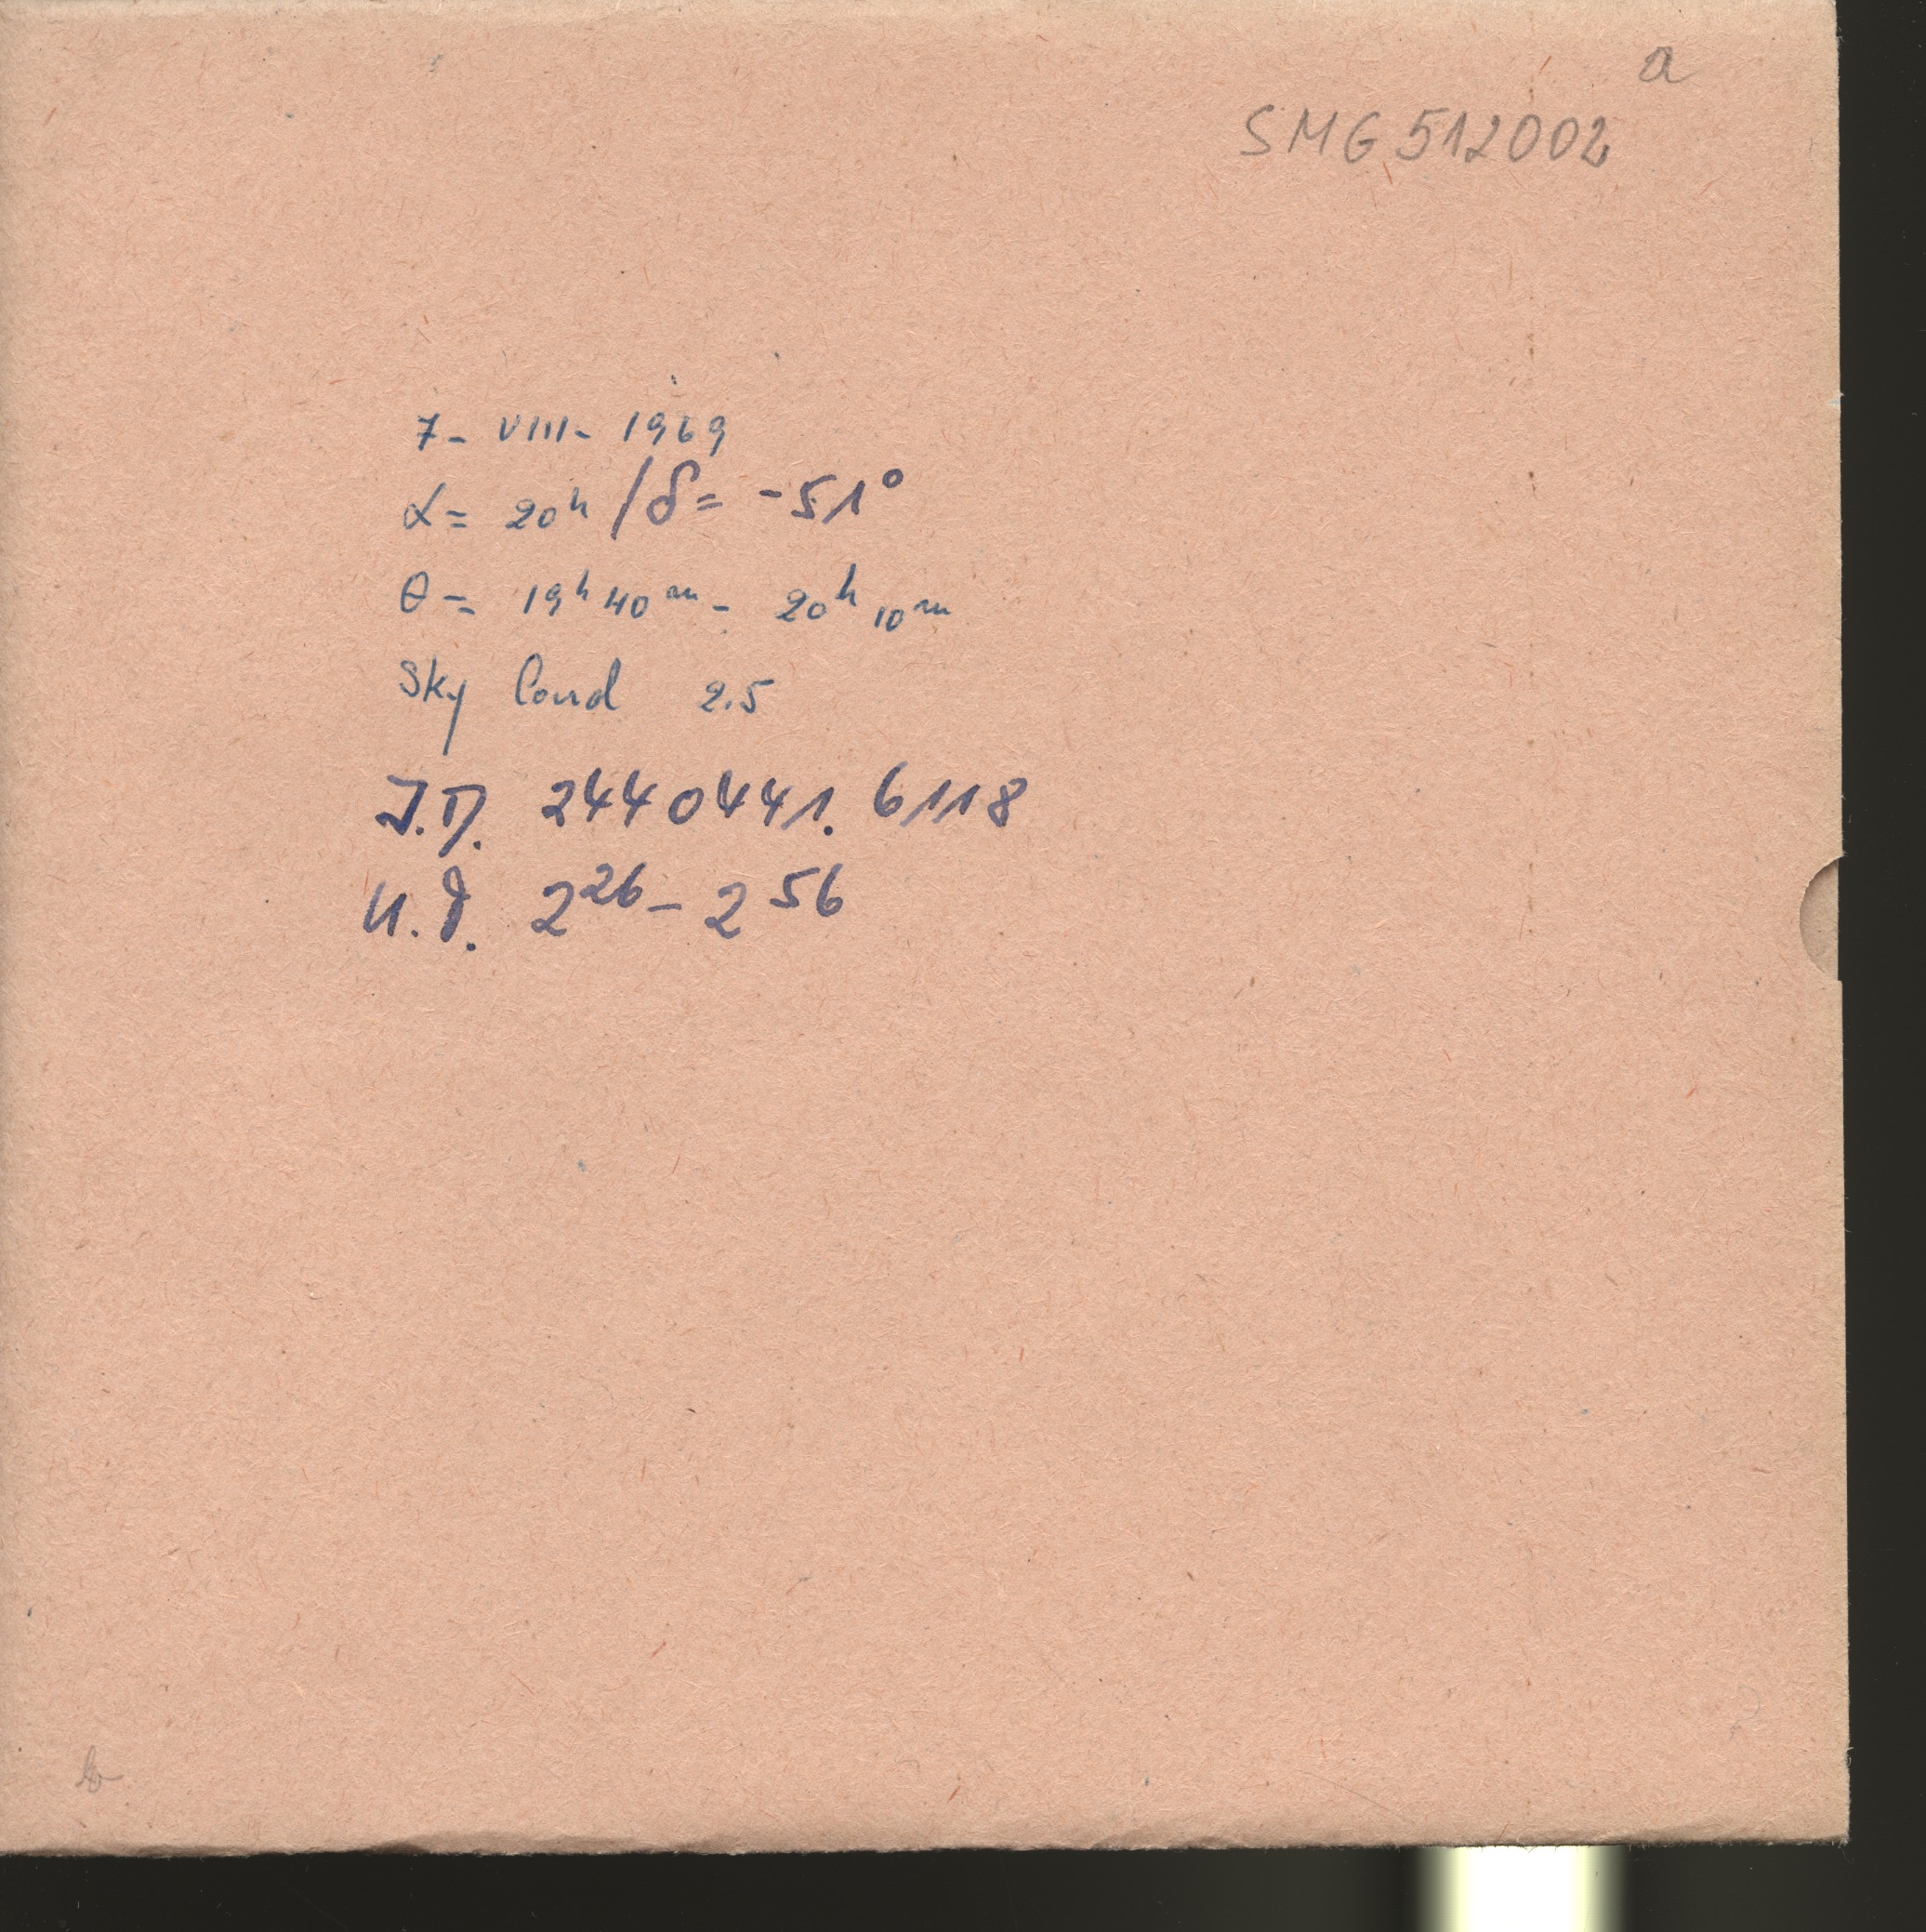 a
SMG 512002
7- VIII- 1969
α= 20ʰ /δ= -51°
θ= 19ʰ 40ᵐ - 20ʰ 10ᵐ
Sky Cond 2.5
J.D. 2440441.6118
U.T. 2²⁶ - 2⁵⁶
b